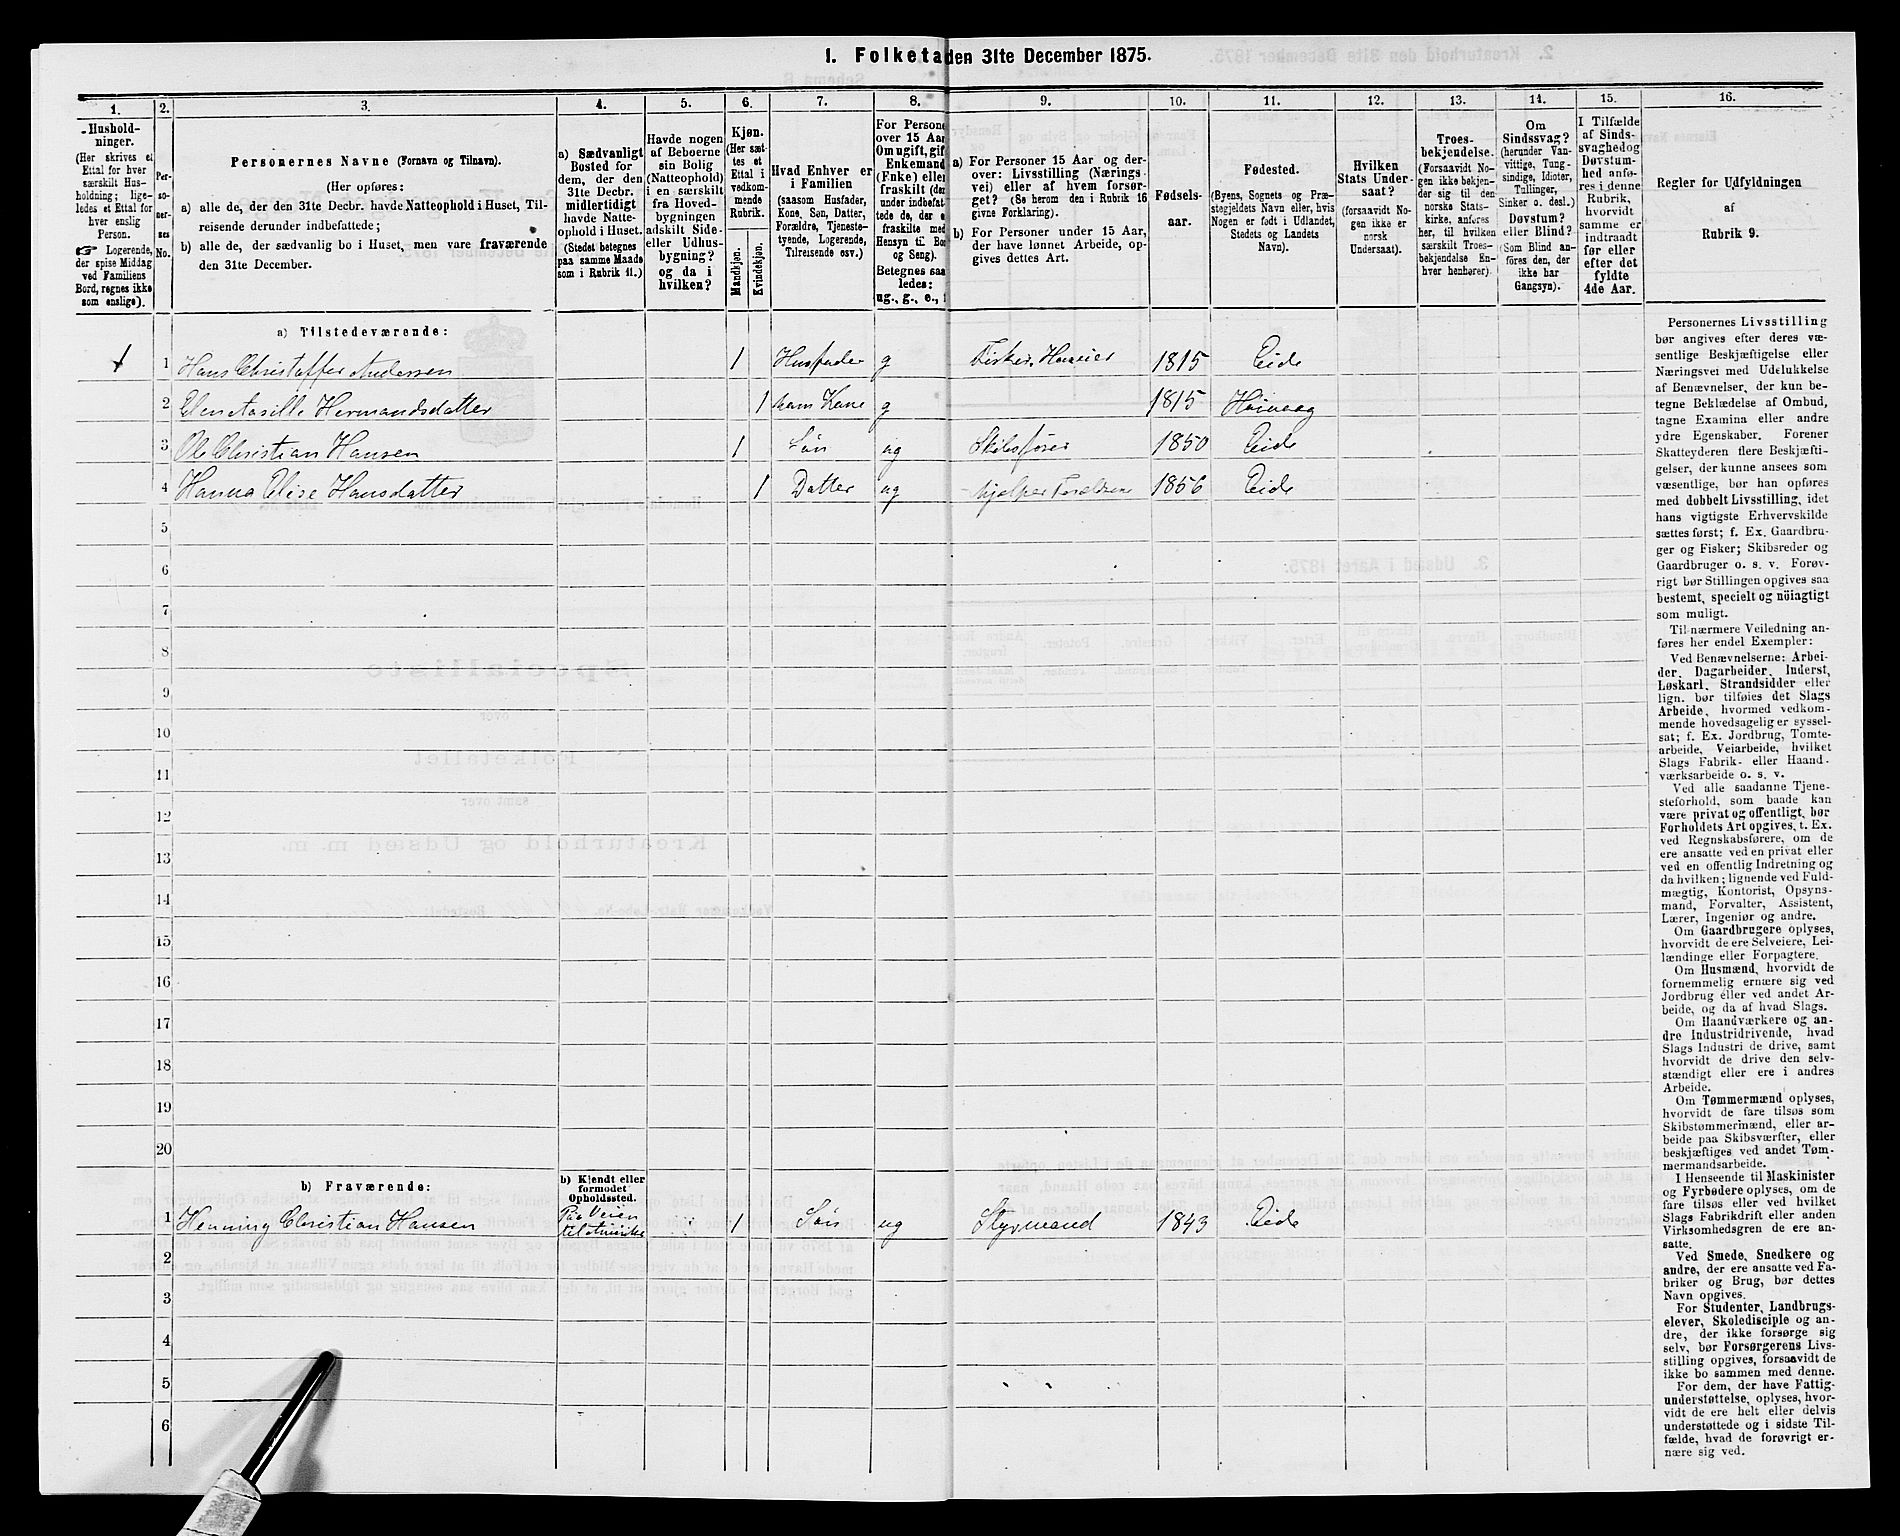 1. Folketa
den 31te December 1875.
1.
2.
3.
4.
5.
6.
7.
8.
9.
10.
11.
12.
13.
14.
15.
16.
Hushold-
ninger.
(Her skrives et
Ettal for hver
særskilt Hus-
holdning; lige-
ledes et Ettal for
hver enslig
Person.
☞ Logerende,
der spise Middag
ved Familiens
Bord, regnes ikke
som enslige).
Per-
so-
ner-
nes
No.
Personernes Navne (Fornavn og Tilnavn).
(Her opføres:
a) alle de, der den 31te Decbr. havde Natteophold i Huset, Til-
reisende derunder indbefattede;
b) alle de, der sædvanlig bo i Huset, men vare fraværende
den 31te December.
a) Sædvanligt
Bosted for
dem, der den
31te Decbr.
midlertidigt
havde Natte-
ophold i Huset.
(Stedet betegnes
paa samme Maade
som i Rubrik 11.)
Havde nogen
af Beboerne
sin Bolig
(Natteophold)
i en særskilt
fra Hoved-
bygningen
adskilt Side-
eller Udhus-
bygning?
og da i
hvilken?
Kjøn.
(Her sæt-
tes et
Ettal i
vedkom-
mende
Rubrik.
Mandkjøn.
Kvindekjøn.
Hvad Enhver er
i Familien
(saasom Husfader,
Kone, Søn, Datter,
Forældre, Tjeneste-
tyende, Logerende,
Tilreisende osv.)
For Persone
over 15 Aar
Om ugift, gif
Enkemand
(Enke) eller
fraskilt (der
under indbefat
tede de, der e
fraskilte med
Hensyn til Bor
og Seng).
Betegnes saa
ledes:
ug., g., e.,
a) For Personer 15 Aar og der-
over: Livsstilling (Nærings-
vei) eller af hvem forsør-
get? (Se herom den i Rubrik 16
givne Forklaring).
b) For Personer under 15 Aar,
der have lønnet Arbeide, op-
gives dettes Art.
Fødsels-
aar.
Fødested.
(Byens, Sognets og Præ-
stegjeldets Navn eller, hvis
Nogen er født i Udlandet,
Stedets og Landets
Navn).
Hvilken
Stats Under-
saat?
(forsaavidt No-
gen ikke er
norsk
Undersaat).
Troes-
bekjendelse.
(Forsaavidt No-
gen ikke bekjen-
der sig til den
norske Stats-
kirke, anføres
her, til hvilken
særskilt Troes-
bekjendelse En-
hver henhører).
Om
Sindssvag?
(herunder Van-
vittige, Tung-
sindige, Idioter,
Tullinger,
Sinker o. desl.)
Døvstum?
eller Blind?
(Som Blind an-
føres den, der
ikke har
Gangsyn).
I Tilfælde
af Sinds-
svaghed og
Døvstum-
hed anfø-
res i denne
Rubrik,
hvorvidt
samme er
indtraadt
før eller
efter det
fyldte
4de Aar.
Regler for Udfyldningen
af
Rubrik 9.
a) Tilstedeværende:
1 Hans Christoffer Andersen 1 Husfader g Fisker, Huseier 1815 Eide
2 Elen Hermandsdatter 1 hans Kone g 1815
3 Ole Christian Hansen 1 Søn ug Skibsfører 1850 Eide
4 Hanna Elise Hansdatter 1 Datter ug hjelper Forældrene 1856 Eide
5
6
7
8
9
10
11
12
13
14
15
16
17
18
19
20
b) Fraværende:
b) Kjendt eller
formodet
Opholdssted.
1 Henning Christian Hansen Paa Veien
til Amerika 1 Søn ug Styrmand 1843 Eide
2
3
4
5
6
Personernes Livsstilling
bør angives efter deres væ-
sentlige Beskjæftigelse eller
Næringsvei med Udelukkelse
af Benævnelser, der kun be-
tegne Beklædelse af Ombud,
tagne Examina eller andre
ydre Egenskaber. Forener
Skatteyderen flere Beskjæfti-
gelser, der kunne ansees som
væsentlige, bør han opføres
med dobbelt Livsstilling, idet
hans vigtigste Erhvervskilde
sættes først; f. Ex. Gaardbru-
ger og Fisker; Skibsreder og
Gaardbruger o. s. v. Forøv-
rigt bør Stillingen opgives saa
bestemt, specielt og nöiagtigt
som muligt.
Til nærmere Veiledning an-
føres her endel Exempler:
Ved Benævnelserne: Arbei-
der, Dagarbeider, Inderst,
Løskarl, Strandsidder eller
lign. bør tilføies det Slags
Arbeide, hvormed vedkom-
mende hovedsagelig er syssel-
sat; f. Ex. Jordbrug, Tomte-
arbeide, Veiarbeide, hvilket
Slags Fabrik- eller Haand-
værksarbeide o. s. v.
Ved alle saadanne Tjene-
steforhold, som baade kan
være privat og offentligt, bør
Forholdets Art opgives, t. Ex.
ved Regnskabsførere, om de
ere ansatte ved en privat eller
ved en offentlig Indretning og
da hvilken; lignende ved Fuld-
mægtig, Kontorist, Opsyns-
mand, Forvalter, Assistent,
Lærer, Ingeniør og andre.
Om Gaardbrugere oplyses,
hvorvidt de ere Selveiere, Lei-
lændinge eller Forpagtere.
Om Husmænd, hvorvidt de
fornemmelig ernære sig ved
Jordbrug eller ved andet Ar-
beide, og da af hvad Slags.
Om Haandværkere og an-
dre Industridrivende, hvad
Slags Industri de drive, samt
hvorvidt de drive den selv-
stændigt eller ere i andres
Arbeide.
Om Tømmermænd oplyses,
hvorvidt de fare tilsøs som
Skibstømmermænd, eller ar-
beide paa Skibsværfter, eller
beskjæftiges ved andet Tøm-
mermandsarbeide.
I Henseende til Maskinister
og Fyrbødere oplyses, om de
fare tilsøs eller ved hvilket
Slags Fabrikdrift eller anden
Virksomhedsgren de ere an-
satte.
Ved Smede, Snedkere og
andre, der ere ansatte ved Fa-
briker og Brug, bør dettes
Navn opgives.
For Studenter, Landbrugs-
elever, Skoledisciple og an-
dre, der ikke forsørge sig
selv, bør Forsørgerens Livs-
stilling opgives, forsaavidt de
ikke bo sammen med denne.
For dem, der have Fattig-
understøttelse, oplyses, hvor-
vidt de ere helt eller delvis
understøttede og i sidste Til-
fælde, hvad de forøvrigt er-
nære sig ved.